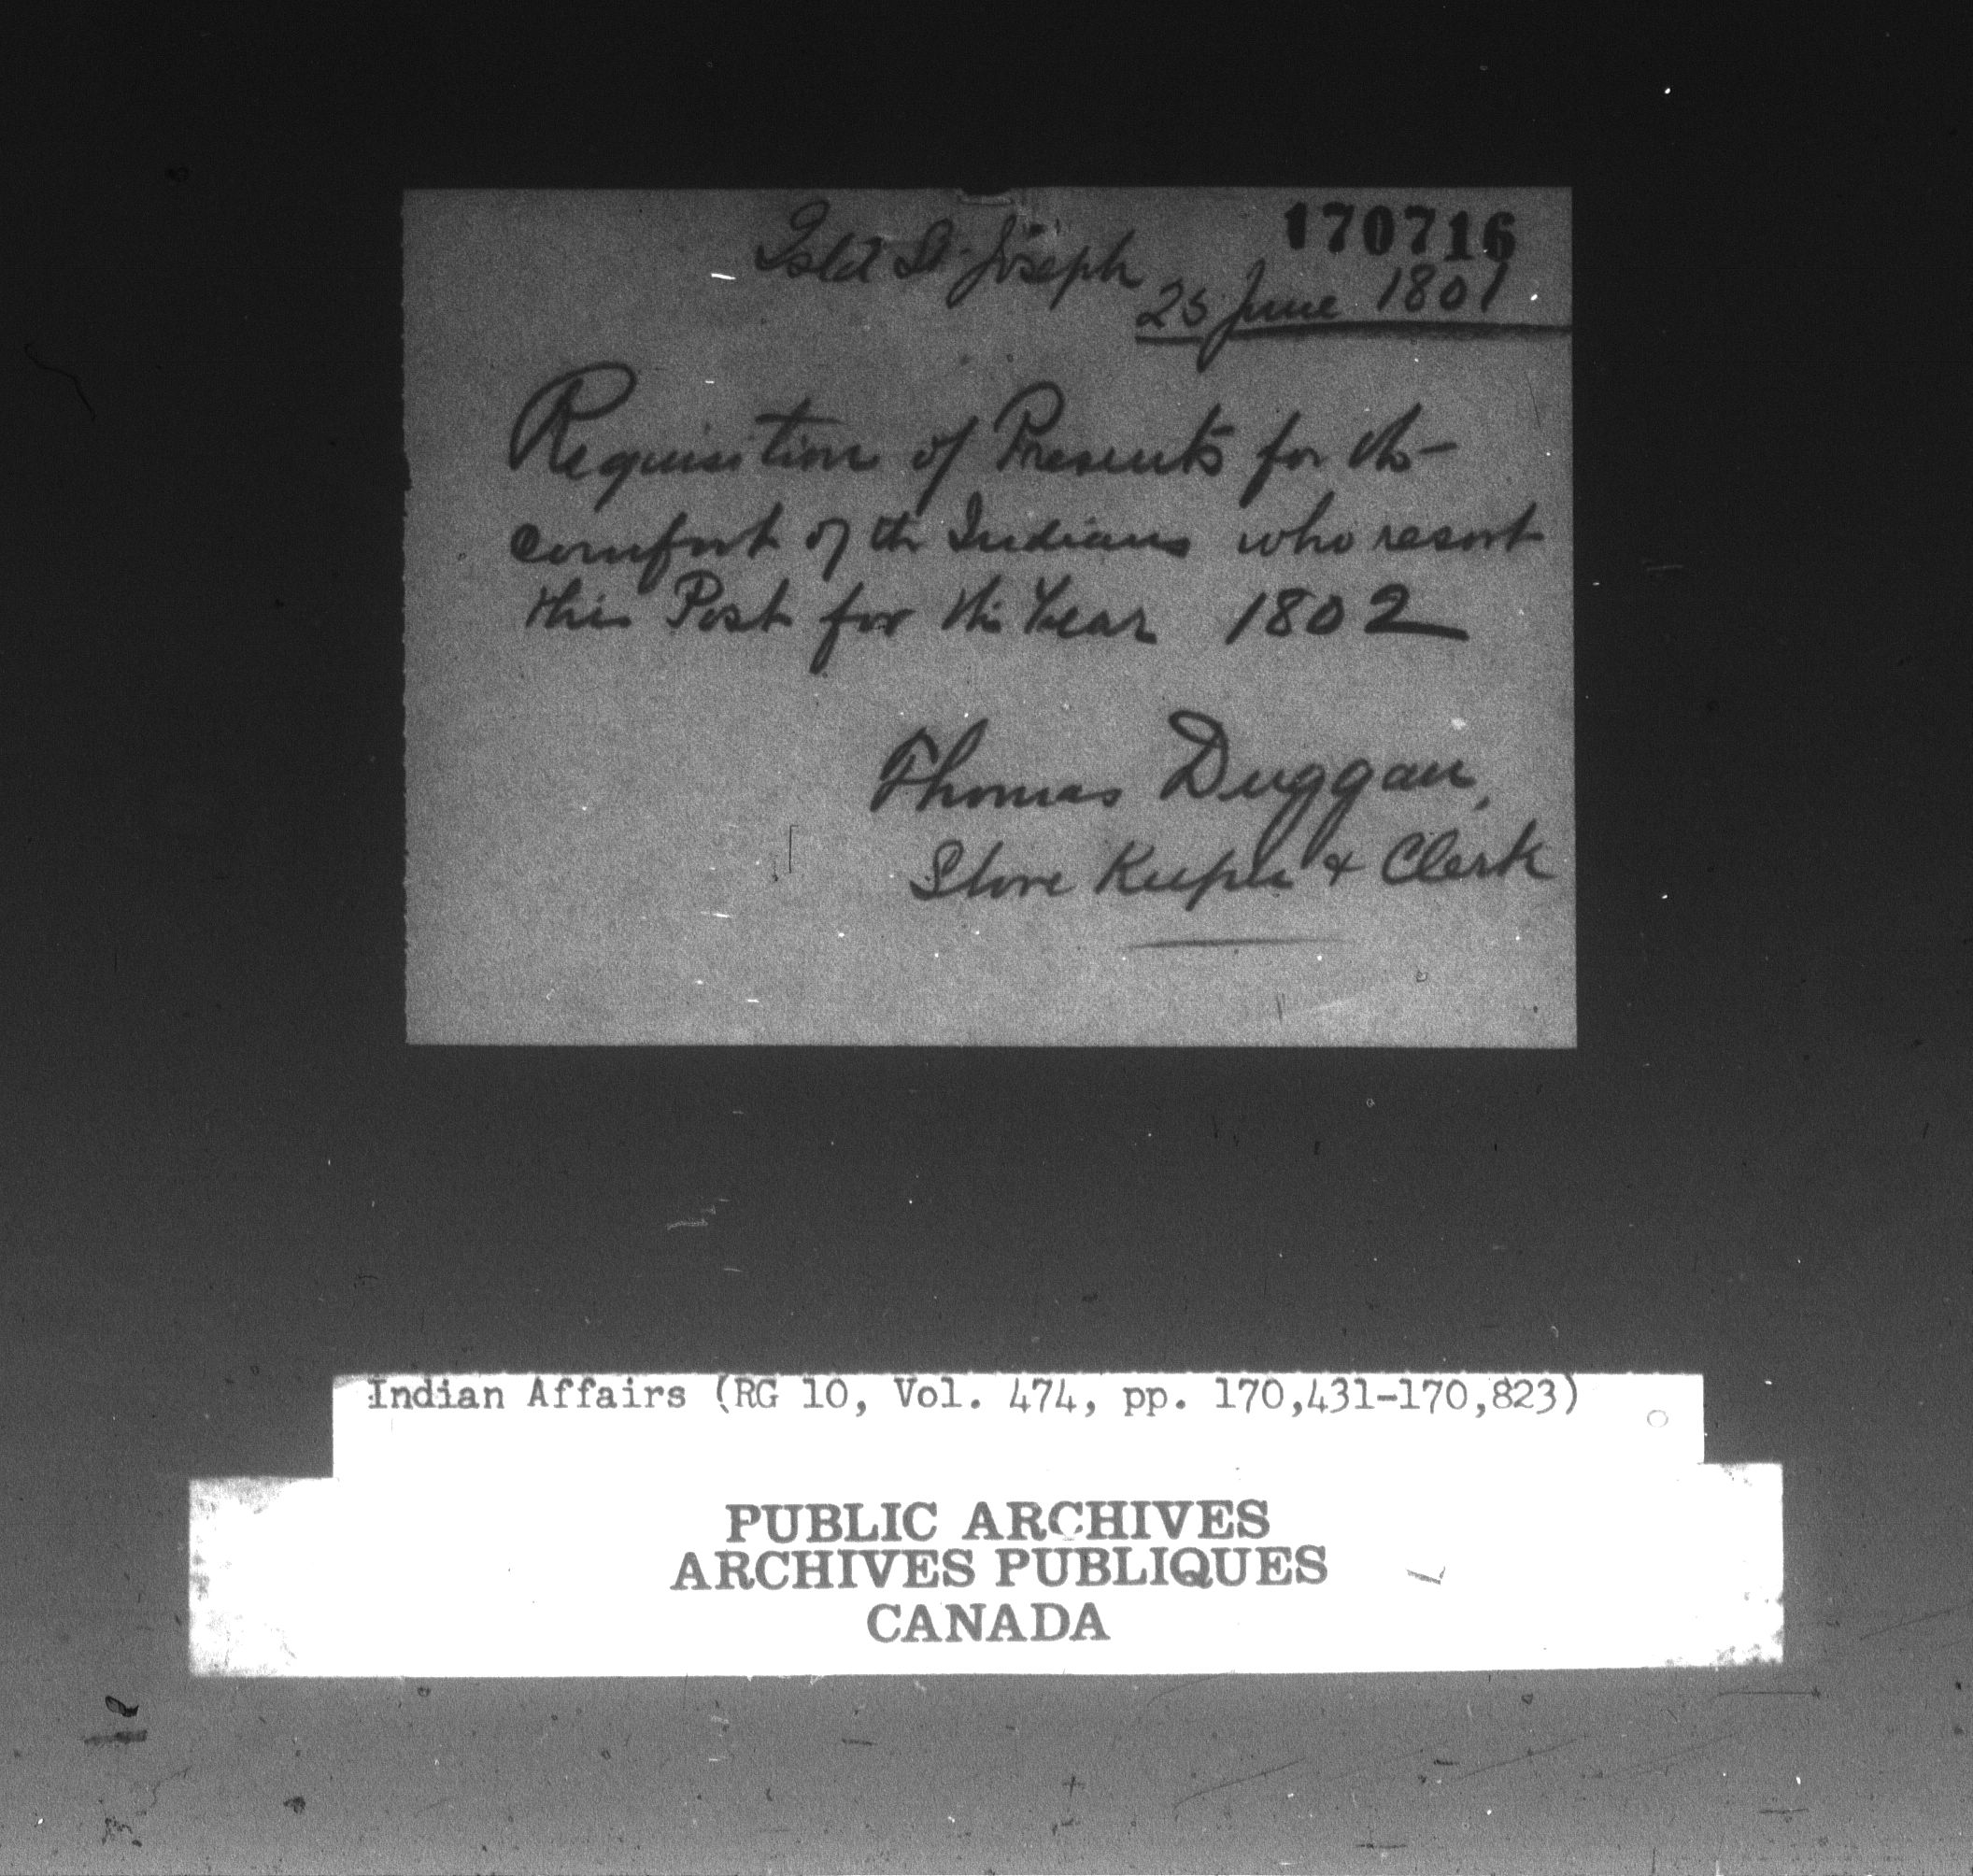 170716
Isld St. Joseph
25 June 1801
Requisition of Presents for the
comfort of the Indians who resort
this Post for the Year 1802
Thomas Duggan,
Store Keeper & Clerk
Indian Affairs (RG 10, Vol. 474, pp. 170,431-170,823)
PUBLIC ARCHIVES
ARCHIVES PUBLIQUES
CANADA